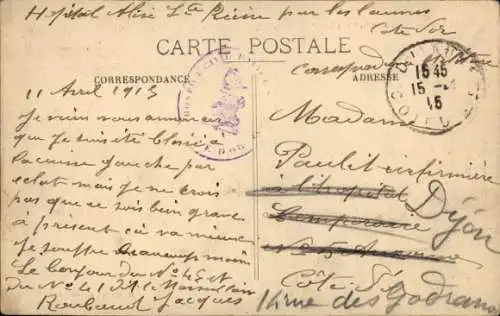 Hôpital Alise Ste Reine par les Laumes
Côte d'Or
CARTE POSTALE
Correspondance militaire
CORRESPONDANCE
ADRESSE
15 45
15 -4
15
COTE D'OR
11 Avril 1915
Je viens vous annoncer
que je suis été blessé a
la cuisse gauche par
eclat mais je ne crois
pas que ce soit bien grave
à présent ca va mieux
je souffre beaucoup moins
Le bonjour du N° 45 et
du N° 41 dit le Marseillais
Roubaud Jacques
Madame
Paulit infirmière
à l'hopital
temporaire
N° 5 Auxonne
Côte d'Or
Dijon
11 rue des Godrans